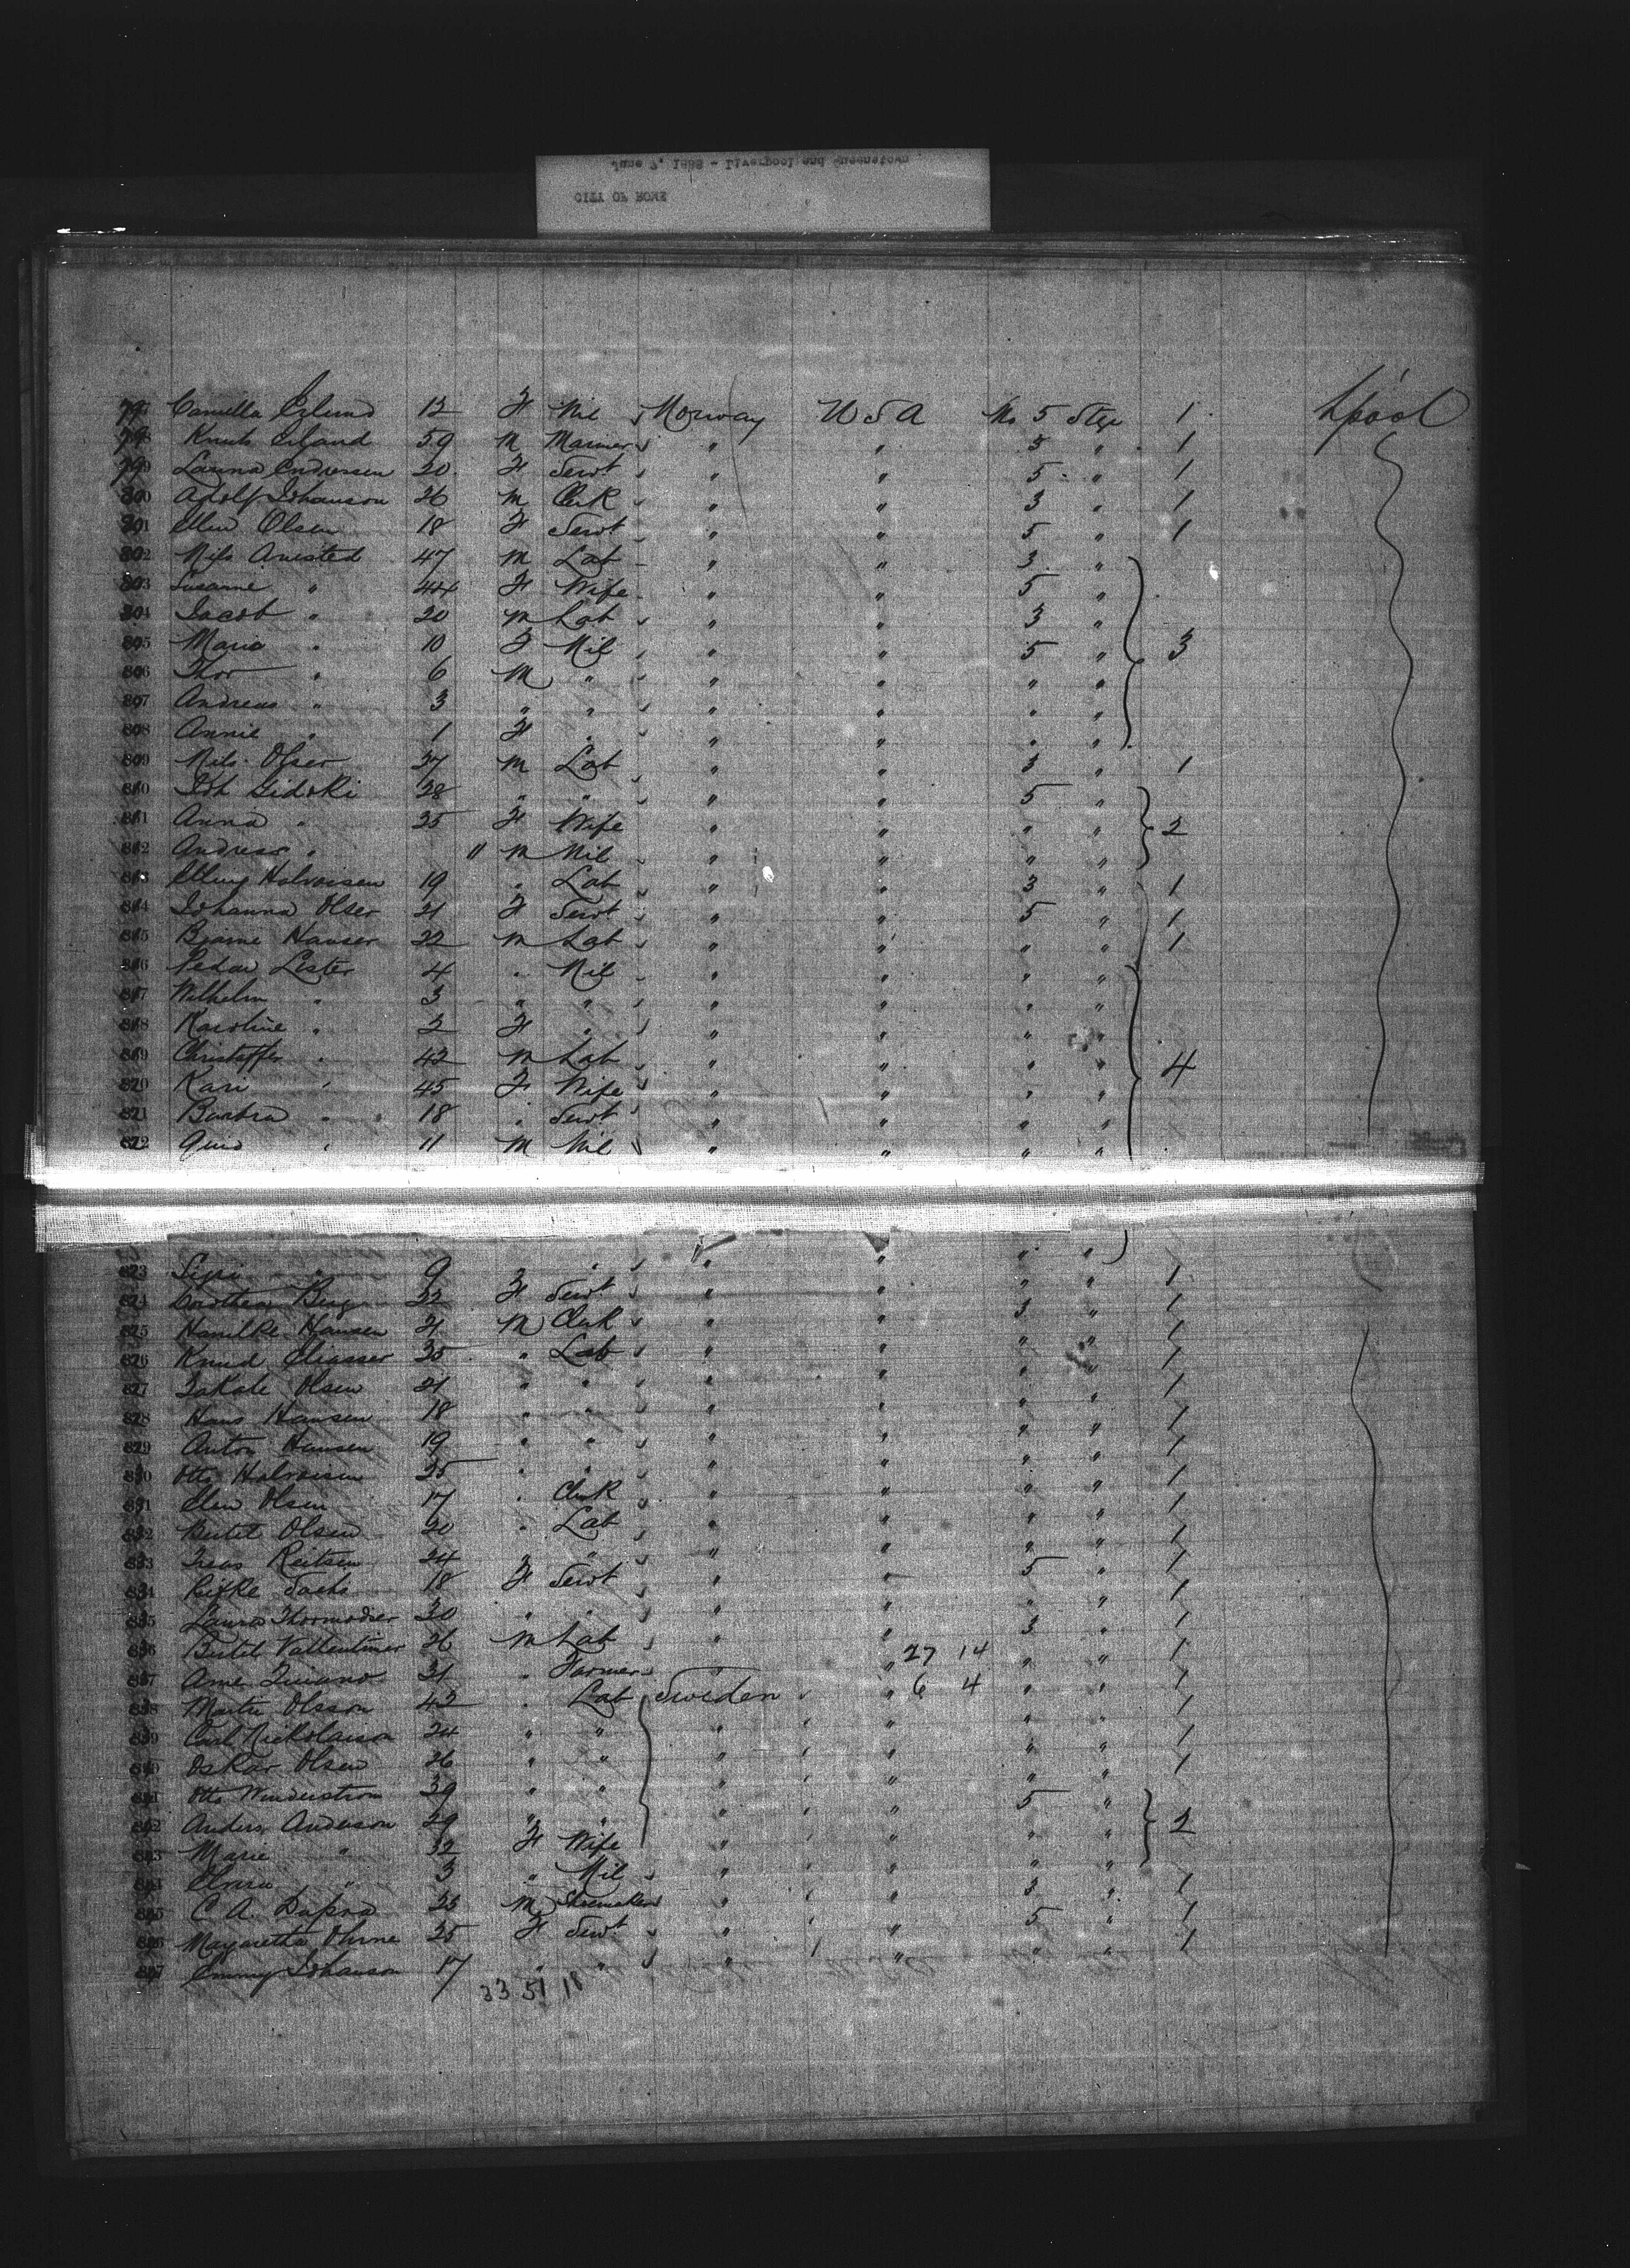 June 7, 1888 - Liverpool and Queenstown
CITY OF ROME
797 Camilla 12 F Nil Norway U S A No 5 Stge 1 L'pool
798 Knut Eiland 59 M Mariner " " 5 " 1
799 Laurna Endressen 20 F Servt " " 5 " 1
800 Adolf Johanson 26 M Clerk " " 3 " 1
801 Ellen Olsen 18 F Servt " " 5 " 1
802 Nils Anested 47 M Lab " " 3 "
803 Susanne " 44 F Wife " " 5 "
804 Jacob " 20 M Lab " " 3 "
805 Maria " 10 F Nil " " 5 " 3
806 Thor " 6 M " " " " "
807 Andreas " 3 " " " " " "
808 Annie " 1 F " " " " "
809 Nils Olser 27 M Lab " " 3 " 1
810 Joh Gidski 28 " " " " 5 "
811 Anna " 25 F Wife " " " " 2
812 Andreas " " M Nil " " " "
813 Elling Halvorsen 19 " Lab " " 3 " 1
814 Johanna Olser 21 F Servt " " 5 " 1
815 Bjarne Hanser 22 M Lab " " " " 1
816 Pedar Lister 4 " Nil " " " "
817 Wilhelm " 3 " " " " " "
818 Karoline " 2 F " " " " "
819 Christoffer " 42 M Lab " " " " 4
820 Kari " 45 F Wife " " " "
821 Barbra " 18 " Servt " " " "
822 " 11 M Nil " " " "
823 Sigri " 9 " " " " "
824 Dorothea Berg 22 F Servt " " " " 1
825 Hansen 21 M Clerk " " 3 " 1
826 Knud Eliasser 35 " Lab " " " " 1
827 Olsen 21 " " " " " " 1
828 Hans Hansen 18 " " " " " " 1
829 Anton Hansen 19 " " " " " " 1
830 Otto Halvorsen 25 " " " " " " 1
831 Olsen 17 " Clerk " " " " 1
832 Bertel Olsen 20 " Lab " " " " 1
833 Reitsen 24 " " " " " " 1
834 Rifke Sachs 18 F Servt " " 5 " 1
835 Laura Thormodser 30 " " " " " " 1
836 Bertel Vallentiner 26 M Lab " " 3 " 1
837 Arne 31 " Farmer " " 27 14 " " 1
838 Martin Olsson 42 " Lab Sweden " 6 4 " " 1
839 Carl Nickolaison 24 " " " " " " 1
840 Oskar Olsen 26 " " " " " " 1
841 Otto Winderstrom 39 " " " " " " 1
842 Anders Anderson 29 " " " " 5 "
843 Marie " 32 F Wife " " " " 2
844 " 3 " Nil " " " "
845 C A. 23 M Shoemaker " " 3 " 1
846 Margaretta Ohrne 25 F Servt " " 5 " 1
847 Emmy Johanson 17 " " " " " " 1
33 51 18